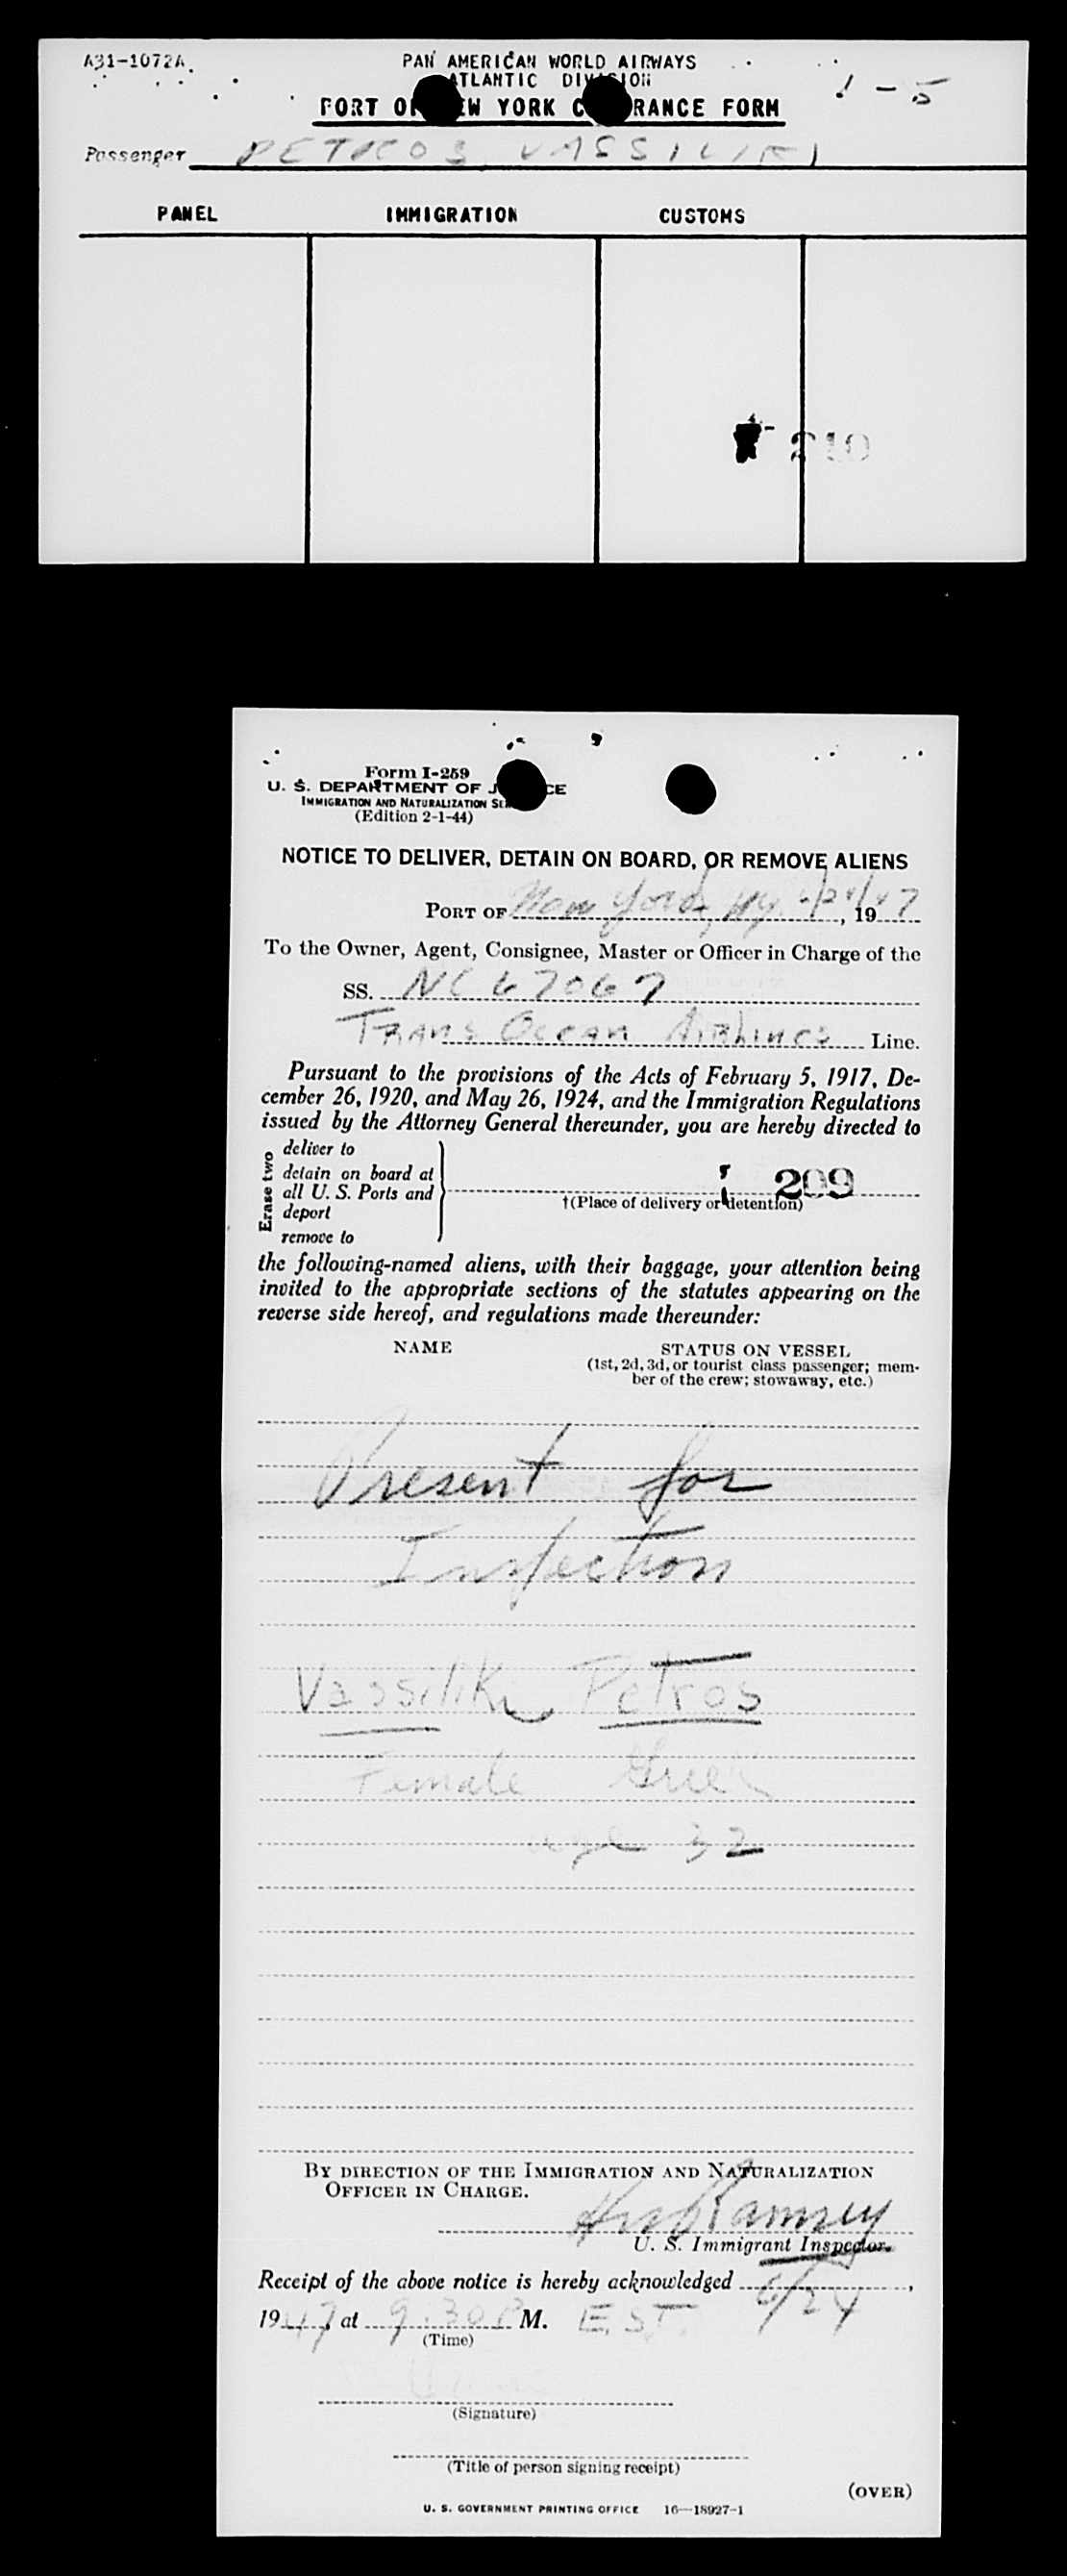 A31-1072A
PAN AMERICAN WORLD AIRWAYS
ATLANTIC DIVISION
PORT OF NEW YORK CLEARANCE FORM
1-5
Passenger PETROS, VASSILIKI
PANEL IMMIGRATION CUSTOMS
210
Form I-259
U. S. DEPARTMENT OF JUSTICE
IMMIGRATION AND NATURALIZATION SERVICE
(Edition 2-1-44)
NOTICE TO DELIVER, DETAIN ON BOARD, OR REMOVE ALIENS
PORT OF New York, NY. 6/24/, 1947
To the Owner, Agent, Consignee, Master or Officer in Charge of the
SS. NC 67067
Trans Ocean Airlines Line.
Pursuant to the provisions of the Acts of February 5, 1917, De-
cember 26, 1920, and May 26, 1924, and the Immigration Regulations
issued by the Attorney General thereunder, you are hereby directed to
Erase two
deliver to
detain on board at
all U. S. Ports and
deport
remove to
209
†(Place of delivery or detention)
the following-named aliens, with their baggage, your attention being
invited to the appropriate sections of the statutes appearing on the
reverse side hereof, and regulations made thereunder:
NAME STATUS ON VESSEL
(1st, 2d, 3d, or tourist class passenger; mem-
ber of the crew; stowaway, etc.)
Present for
Inspection
Vassiliki Petros
Female Greek
age 32
BY DIRECTION OF THE IMMIGRATION AND NATURALIZATION
OFFICER IN CHARGE.
Ramsey
U. S. Immigrant Inspector.
Receipt of the above notice is hereby acknowledged 6/24,
1947 at 9:30 P M. EST
(Time)
(Signature)
(Title of person signing receipt)
(OVER)
U. S. GOVERNMENT PRINTING OFFICE 16—18927-1